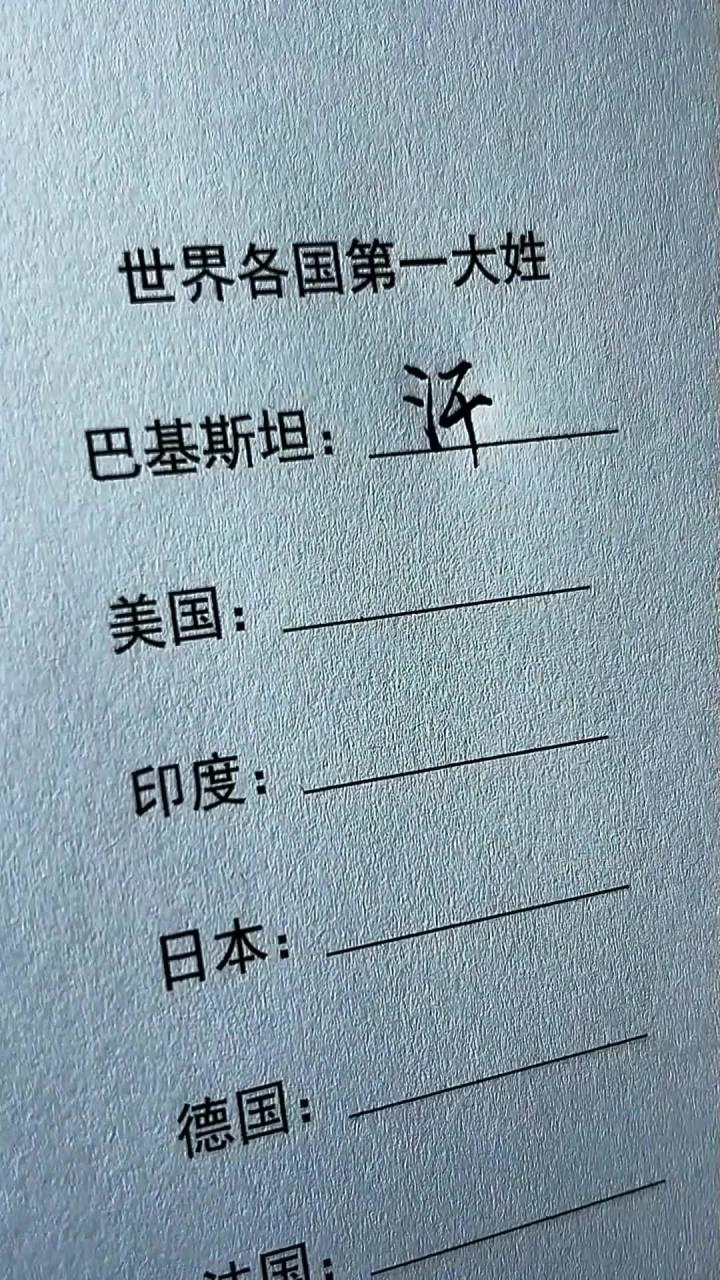 世界各国第一大姓
巴基斯坦：汗
美国：
印度：
日本：
德国：
法国：